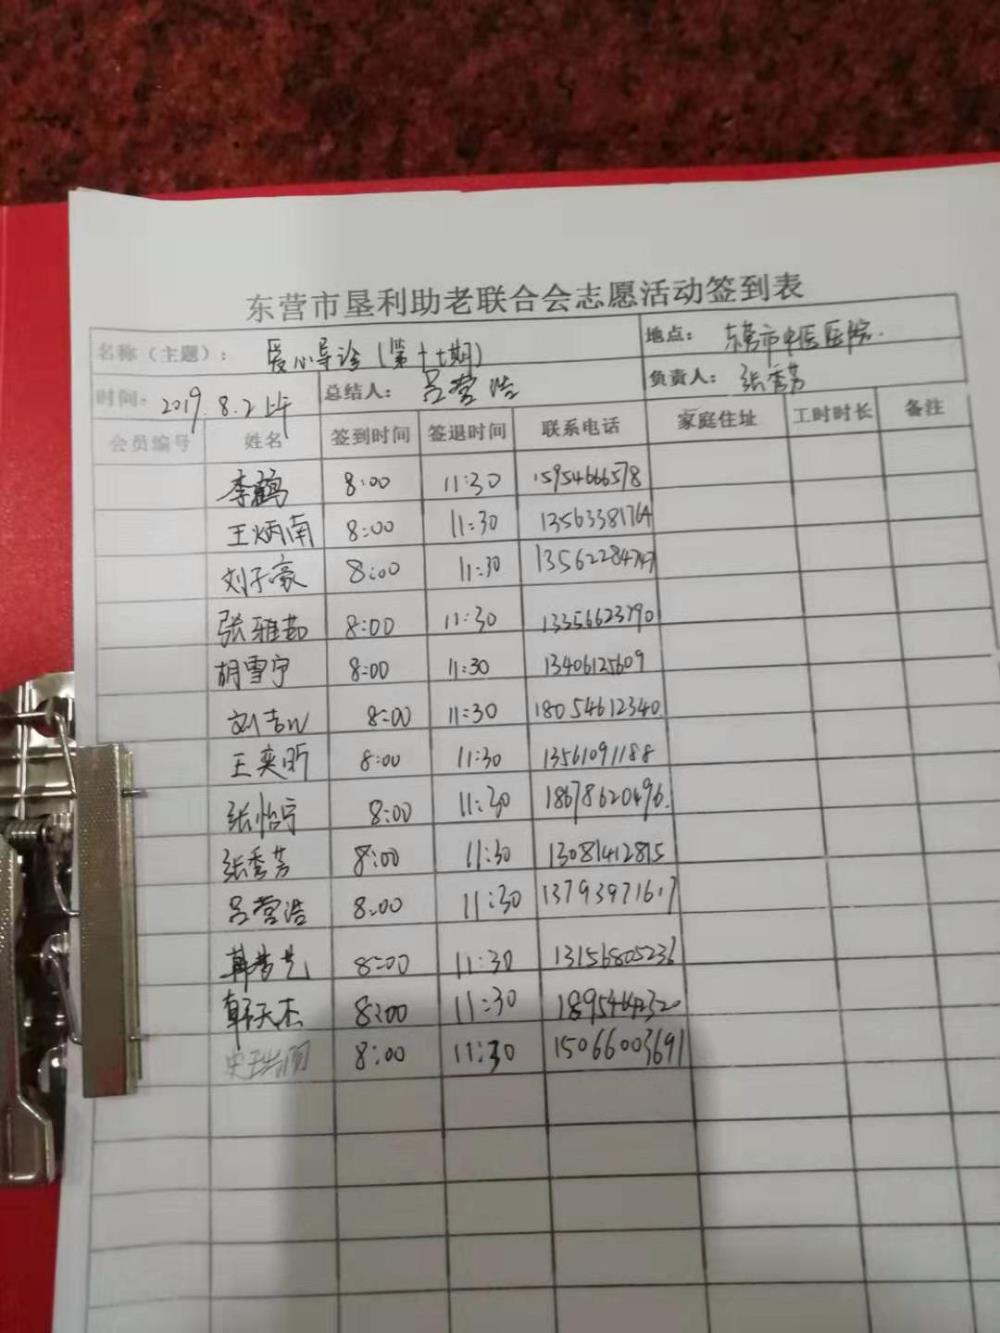 东营市垦利助老联合会志愿活动签到表
名称（主题）： 爱心导诊（第十七期） 地点： 东营市中医医院.
时间： 2019.8.2上午 总结人： 吕营浩 负责人： 张秀芳
会员编号 姓名 签到时间 签退时间 联系电话 家庭住址 工时时长 备注
李鹤 8:00 11:30 15954666578
王炳南 8:00 11:30 13563381764
刘子豪 8:00 11:30 13562284747
张雅茹 8:00 11:30 13356623790
胡雪宁 8:00 11:30 13406125609
刘 8:00 11:30 18054612340
王奕昕 8:00 11:30 13561091188
张怡宁 8:00 11:30 18678620496.
张秀芳 8:00 11:30 13081412815
吕营浩 8:00 11:30 13793971617
韩梦 8:00 11:30 13156805236
韩天杰 8:00 11:30
8:00 11:30 15066003691